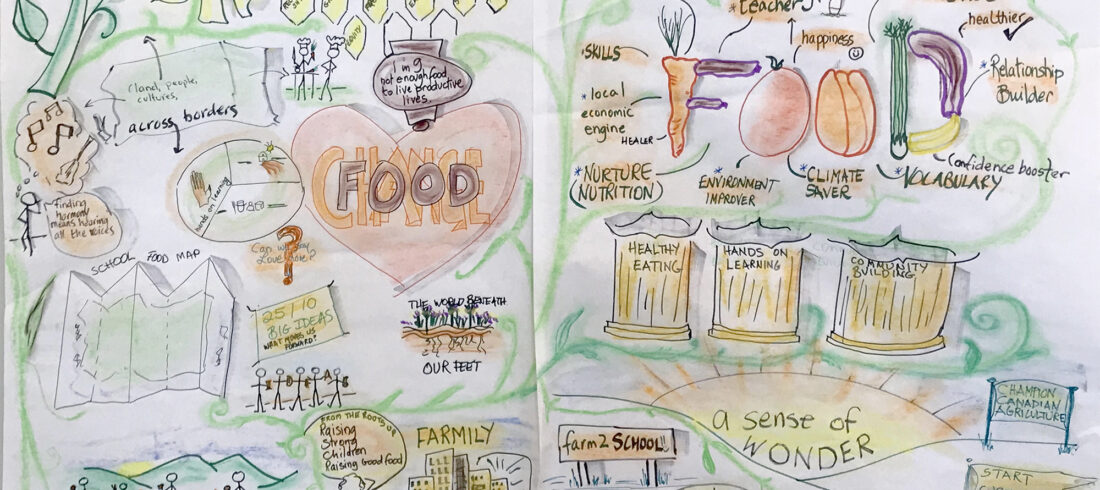 EQUITY
1 in 9
not enough food
to live productive
lives.
(land, people,
cultures,
across borders
hands on learning
finding
harmony
means hearing
all the voices
CHANGE
FOOD
Can we
Love
?
SCHOOL FOOD MAP
25 | 10
BIG IDEAS
WHAT MOVES US
FORWARD?
THE WORLD BENEATH
OUR FEET
FROM THE ROOTS UP
Raising
Strong
Children
Raising Good food
FARMILY
*teacher
happiness
healthier
*SKILLS
*local
economic
engine
HEALER
FOOD
*Relationship
Builder
*NURTURE
(NUTRITION)
*ENVIRONMENT
IMPROVER
*CLIMATE
SAVER
Confidence booster
*VOCABULARY
HEALTHY
EATING
HANDS ON
LEARNING
COMMUNITY
BUILDING
a sense of
WONDER
farm2SCHOOL!!
CHAMPION
CANADIAN
AGRICULTURE
START